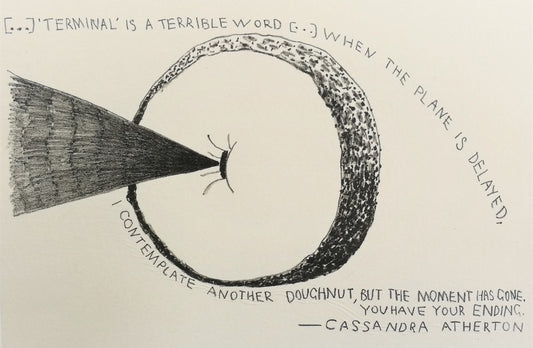 [...] 'TERMINAL' IS A TERRIBLE WORD [...] WHEN THE PLANE IS DELAYED,
I CONTEMPLATE ANOTHER DOUGHNUT, BUT THE MOMENT HAS GONE.
YOU HAVE YOUR ENDING.
—CASSANDRA ATHERTON